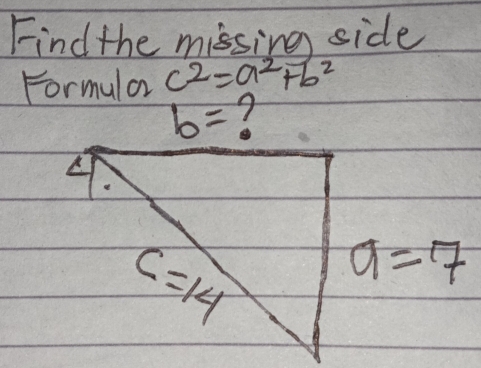 Find the missing side
Formula c²=a²+b²
b=?
c=14
a=7